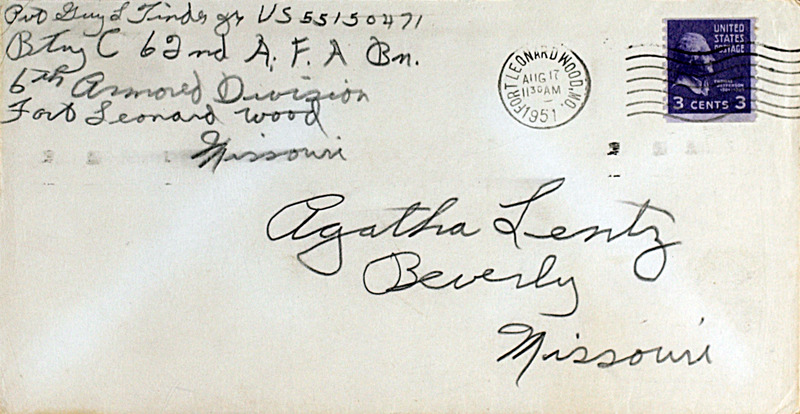 Pvt Guy L Tinder Jr US 55150471
Btry C 62nd A. F. A Bn.
6th Armored Division
Fort Leonard Wood
Missouri
FORT LEONARD WOOD, MO.
AUG 17
1130 AM
1951
UNITED
STATES
POSTAGE
3 CENTS 3
Agatha Lentz
Beverly
Missouri